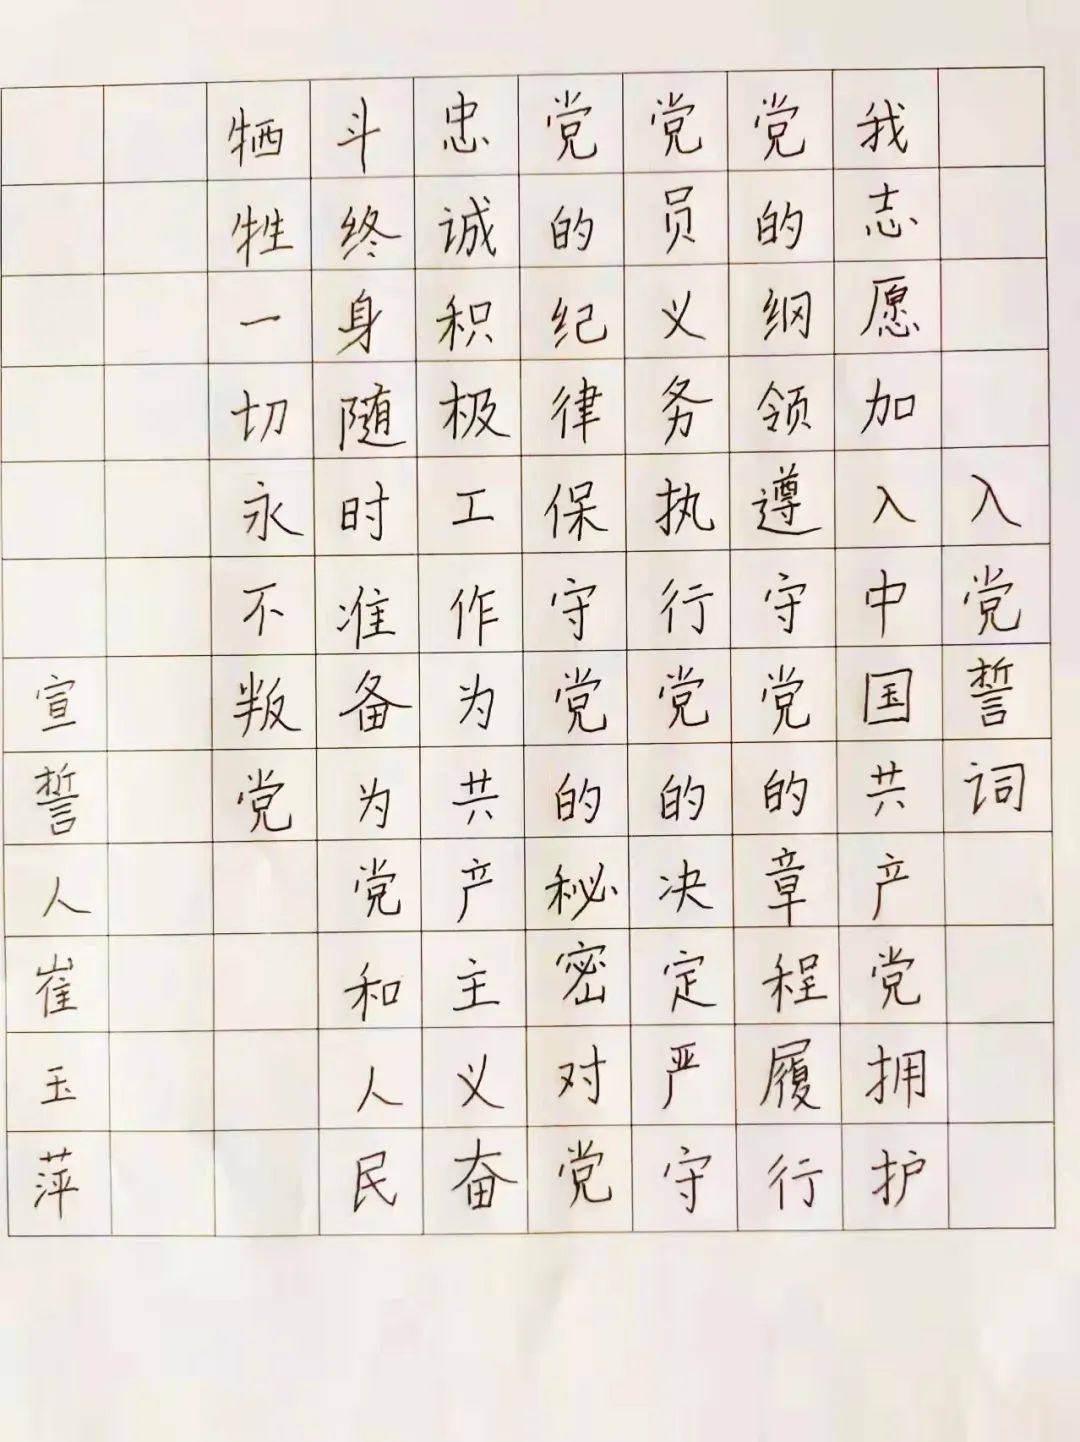 入党誓词
我志愿加入中国共产党拥护
党的纲领遵守党的章程履行
党员义务执行党的决定严守
党的纪律保守党的秘密对党
忠诚积极工作为共产主义奋
斗终身随时准备为党和人民
牺牲一切永不叛党
宣誓人崔玉萍